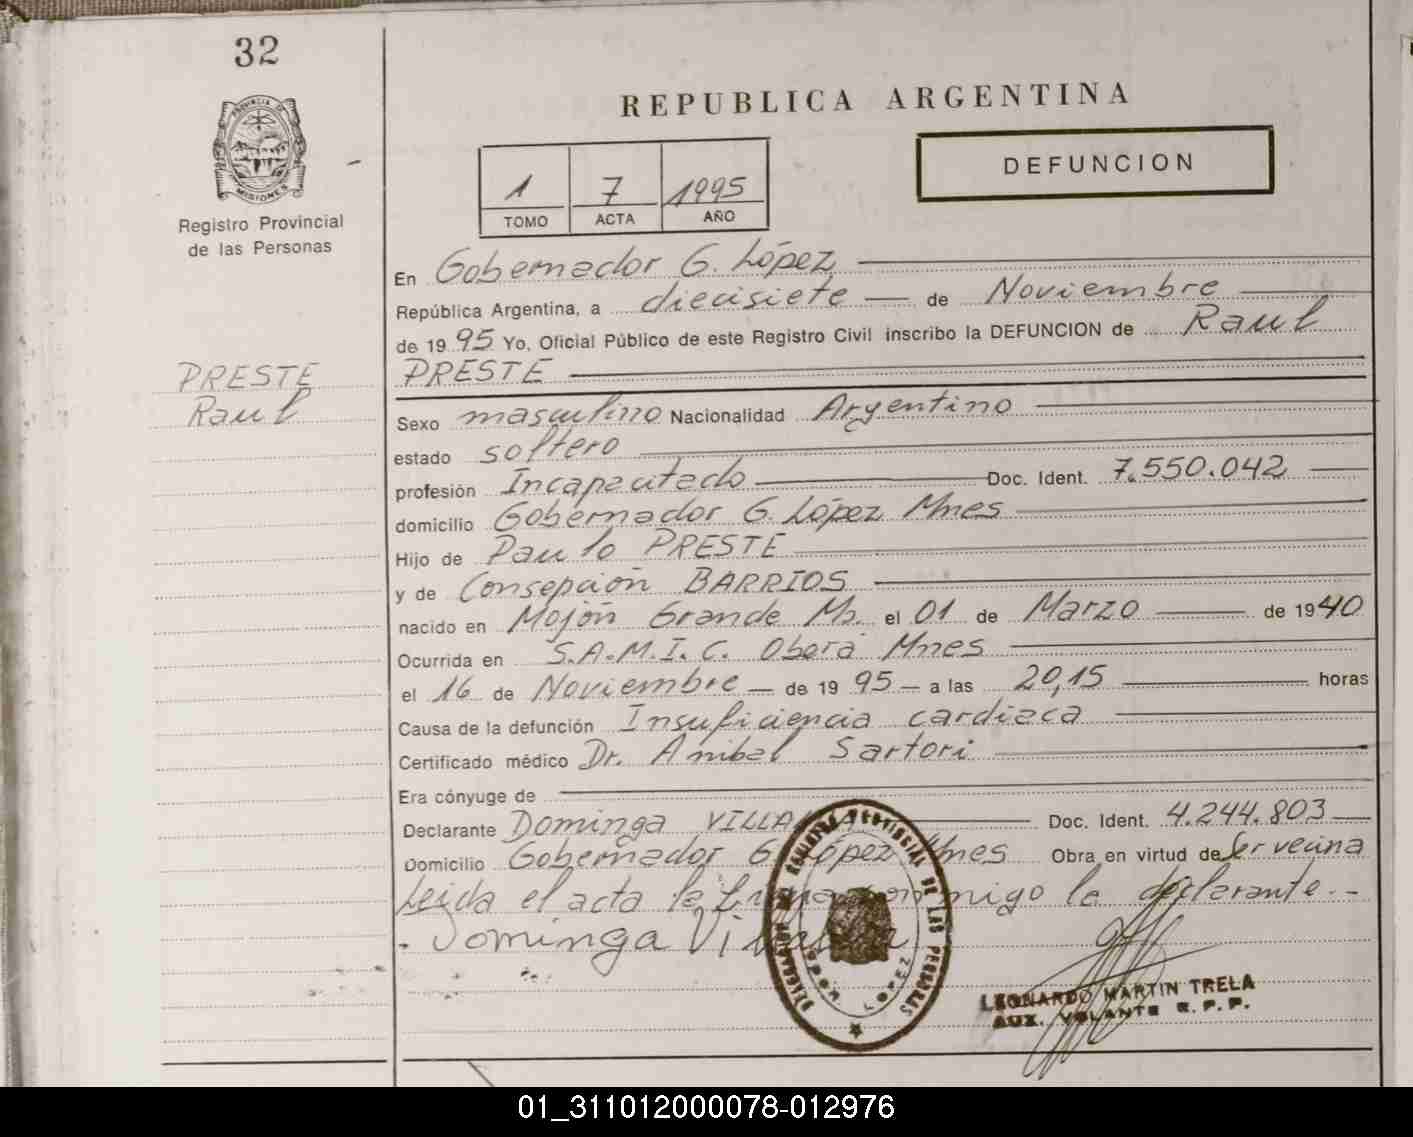 32
PROVINCIA DE
MISIONES
Registro Provincial
de las Personas
PRESTE
Raul
REPUBLICA ARGENTINA
DEFUNCION
1 7 1995
TOMO ACTA AÑO
En Gobernador G. López
República Argentina, a diecisiete de Noviembre
de 1995 Yo, Oficial Público de este Registro Civil inscribo la DEFUNCION de Raul
PRESTE
Sexo masculino Nacionalidad Argentino
estado soltero
profesión Incapacitado Doc. Ident. 7.550.042
domicilio Gobernador G. López Mnes
Hijo de Paulo PRESTE
y de Consepción BARRIOS
nacido en Mojón Grande Ms. el 01 de Marzo de 1940
Ocurrida en S.A.M.I.C. Oberá Mnes
el 16 de Noviembre de 1995 a las 20,15 horas
Causa de la defunción Insuficiencia cardiaca
Certificado médico Dr. Anibal Sartori
Era cónyuge de
Declarante Dominga Doc. Ident. 4.244.803
Domicilio Gobernador G. López Mnes Obra en virtud de Ser vecina
Leida el acta la firma conmigo la declarante.-
Dominga
DELEGACION DEL REGISTRO PROVINCIAL DE LAS PERSONAS
LOPEZ
LEONARDO MARTIN TRELA
AUX. VOLANTE R. P. P.
01_311012000078-012976